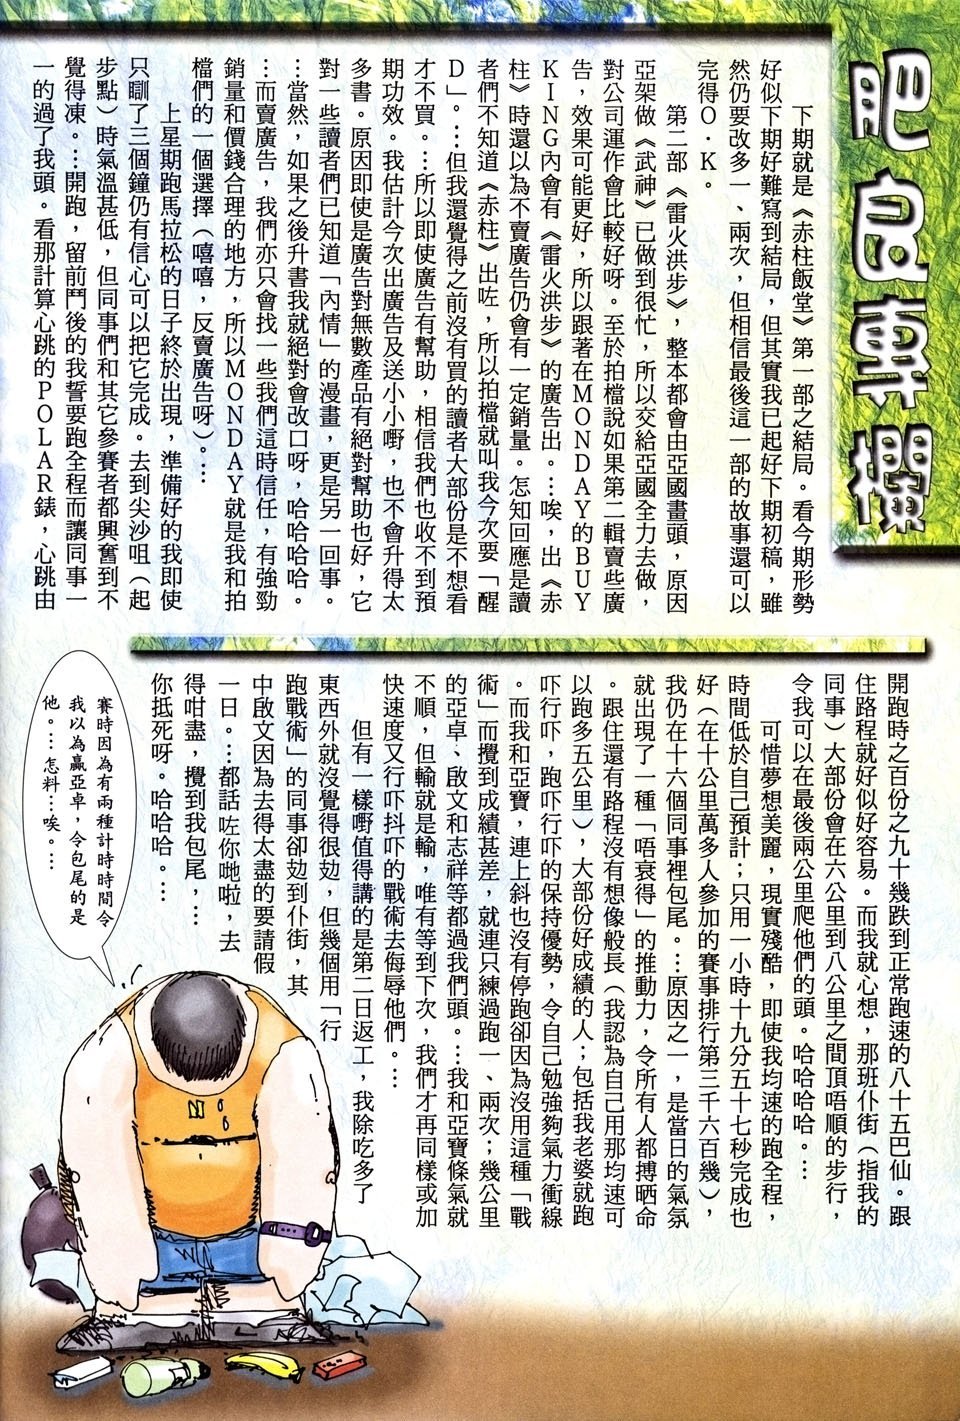 肥良專欄
下期就是《赤柱飯堂》第一部之結局。看今期形勢
好似下期好難寫到結局，但其實我已起好下期初稿，雖
然仍要改多一、兩次，但相信最後這一部的故事還可以
完得O．K。
第二部《雷火洪步》，整本都會由亞國畫頭，原因
亞架做《武神》已做到很忙，所以交給亞國全力去做，
對公司運作會比較好呀。至於拍檔說如果第二輯賣些廣
告，效果可能更好，所以跟著在MONDAY的BUY
KING內會有《雷火洪步》的廣告出。…唉，出《赤
柱》時還以為不賣廣告仍會有一定銷量。怎知回應是讀
者們不知道《赤柱》出咗，所以拍檔就叫我今次要「醒
D」。…但我還覺得之前沒有買的讀者大部份是不想看
才不買。…所以即使廣告有幫助，相信我們也收不到預
期功效。我估計今次出廣告及送小小嘢，也不會升得太
多書。原因即使是廣告對無數產品有絕對幫助也好，它
對一些讀者們已知道「內情」的漫畫，更是另一回事。
…當然，如果之後升書我就絕對會改口呀，哈哈哈哈。
…而賣廣告，我們亦只會找一些我們這時信任，有強勁
銷量和價錢合理的地方，所以MONDAY就是我和拍
檔們的一個選擇（嘻嘻，反賣廣告呀）。…
上星期跑馬拉松的日子終於出現，準備好的我即使
只瞓了三個鐘仍有信心可以把它完成。去到尖沙咀（起
步點）時氣溫甚低，但同事們和其它參賽者都興奮到不
覺得凍。…開跑，留前鬥後的我誓要跑全程而讓同事一
一的過了我頭。看那計算心跳的POLAR錶，心跳由
開跑時之百份之九十幾跌到正常跑速的八十五巴仙。跟
住路程就好似好容易。而我就心想，那班仆街（指我的
同事）大部份會在六公里到八公里之間頂唔順的步行，
令我可以在最後兩公里爬他們的頭。哈哈哈哈。…
可惜夢想美麗，現實殘酷，即使我均速的跑全程，
時間低於自己預計；只用一小時十九分五十七秒完成也
好（在十公里萬多人參加的賽事排行第三千六百幾），
我仍在十六個同事裡包尾。…原因之一，是當日的氣氛
就出現了一種「唔衰得」的推動力，令所有人都搏晒命
。跟住還有路程沒有想像般長（我認為自己用那均速可
以跑多五公里），大部份好成績的人；包括我老婆就跑
吓行吓，跑吓行吓的保持優勢，令自己勉強夠氣力衝線
。而我和亞寶，連上斜也沒有停跑卻因為沒用這種「戰
術」而攪到成績甚差，就連只練過跑一、兩次；幾公里
的亞卓、啟文和志祥等都過我們頭。…我和亞寶條氣就
不順，但輸就是輸，唯有等到下次，我們才再同樣或加
快速度又行吓抖吓的戰術去侮辱他們。…
但有一樣嘢值得講的是第二日返工，我除吃多了
東西外就沒覺得很攰，但幾個用「行
跑戰術」的同事卻攰到仆街，其
中啟文因為去得太盡的要請假
一日。…都話咗你哋啦，去
得咁盡，攪到我包尾，…
你抵死呀。哈哈哈。…
賽時因為有兩種計時時間令
我以為贏亞卓，令包尾的是
他。…怎料…唉。…
N